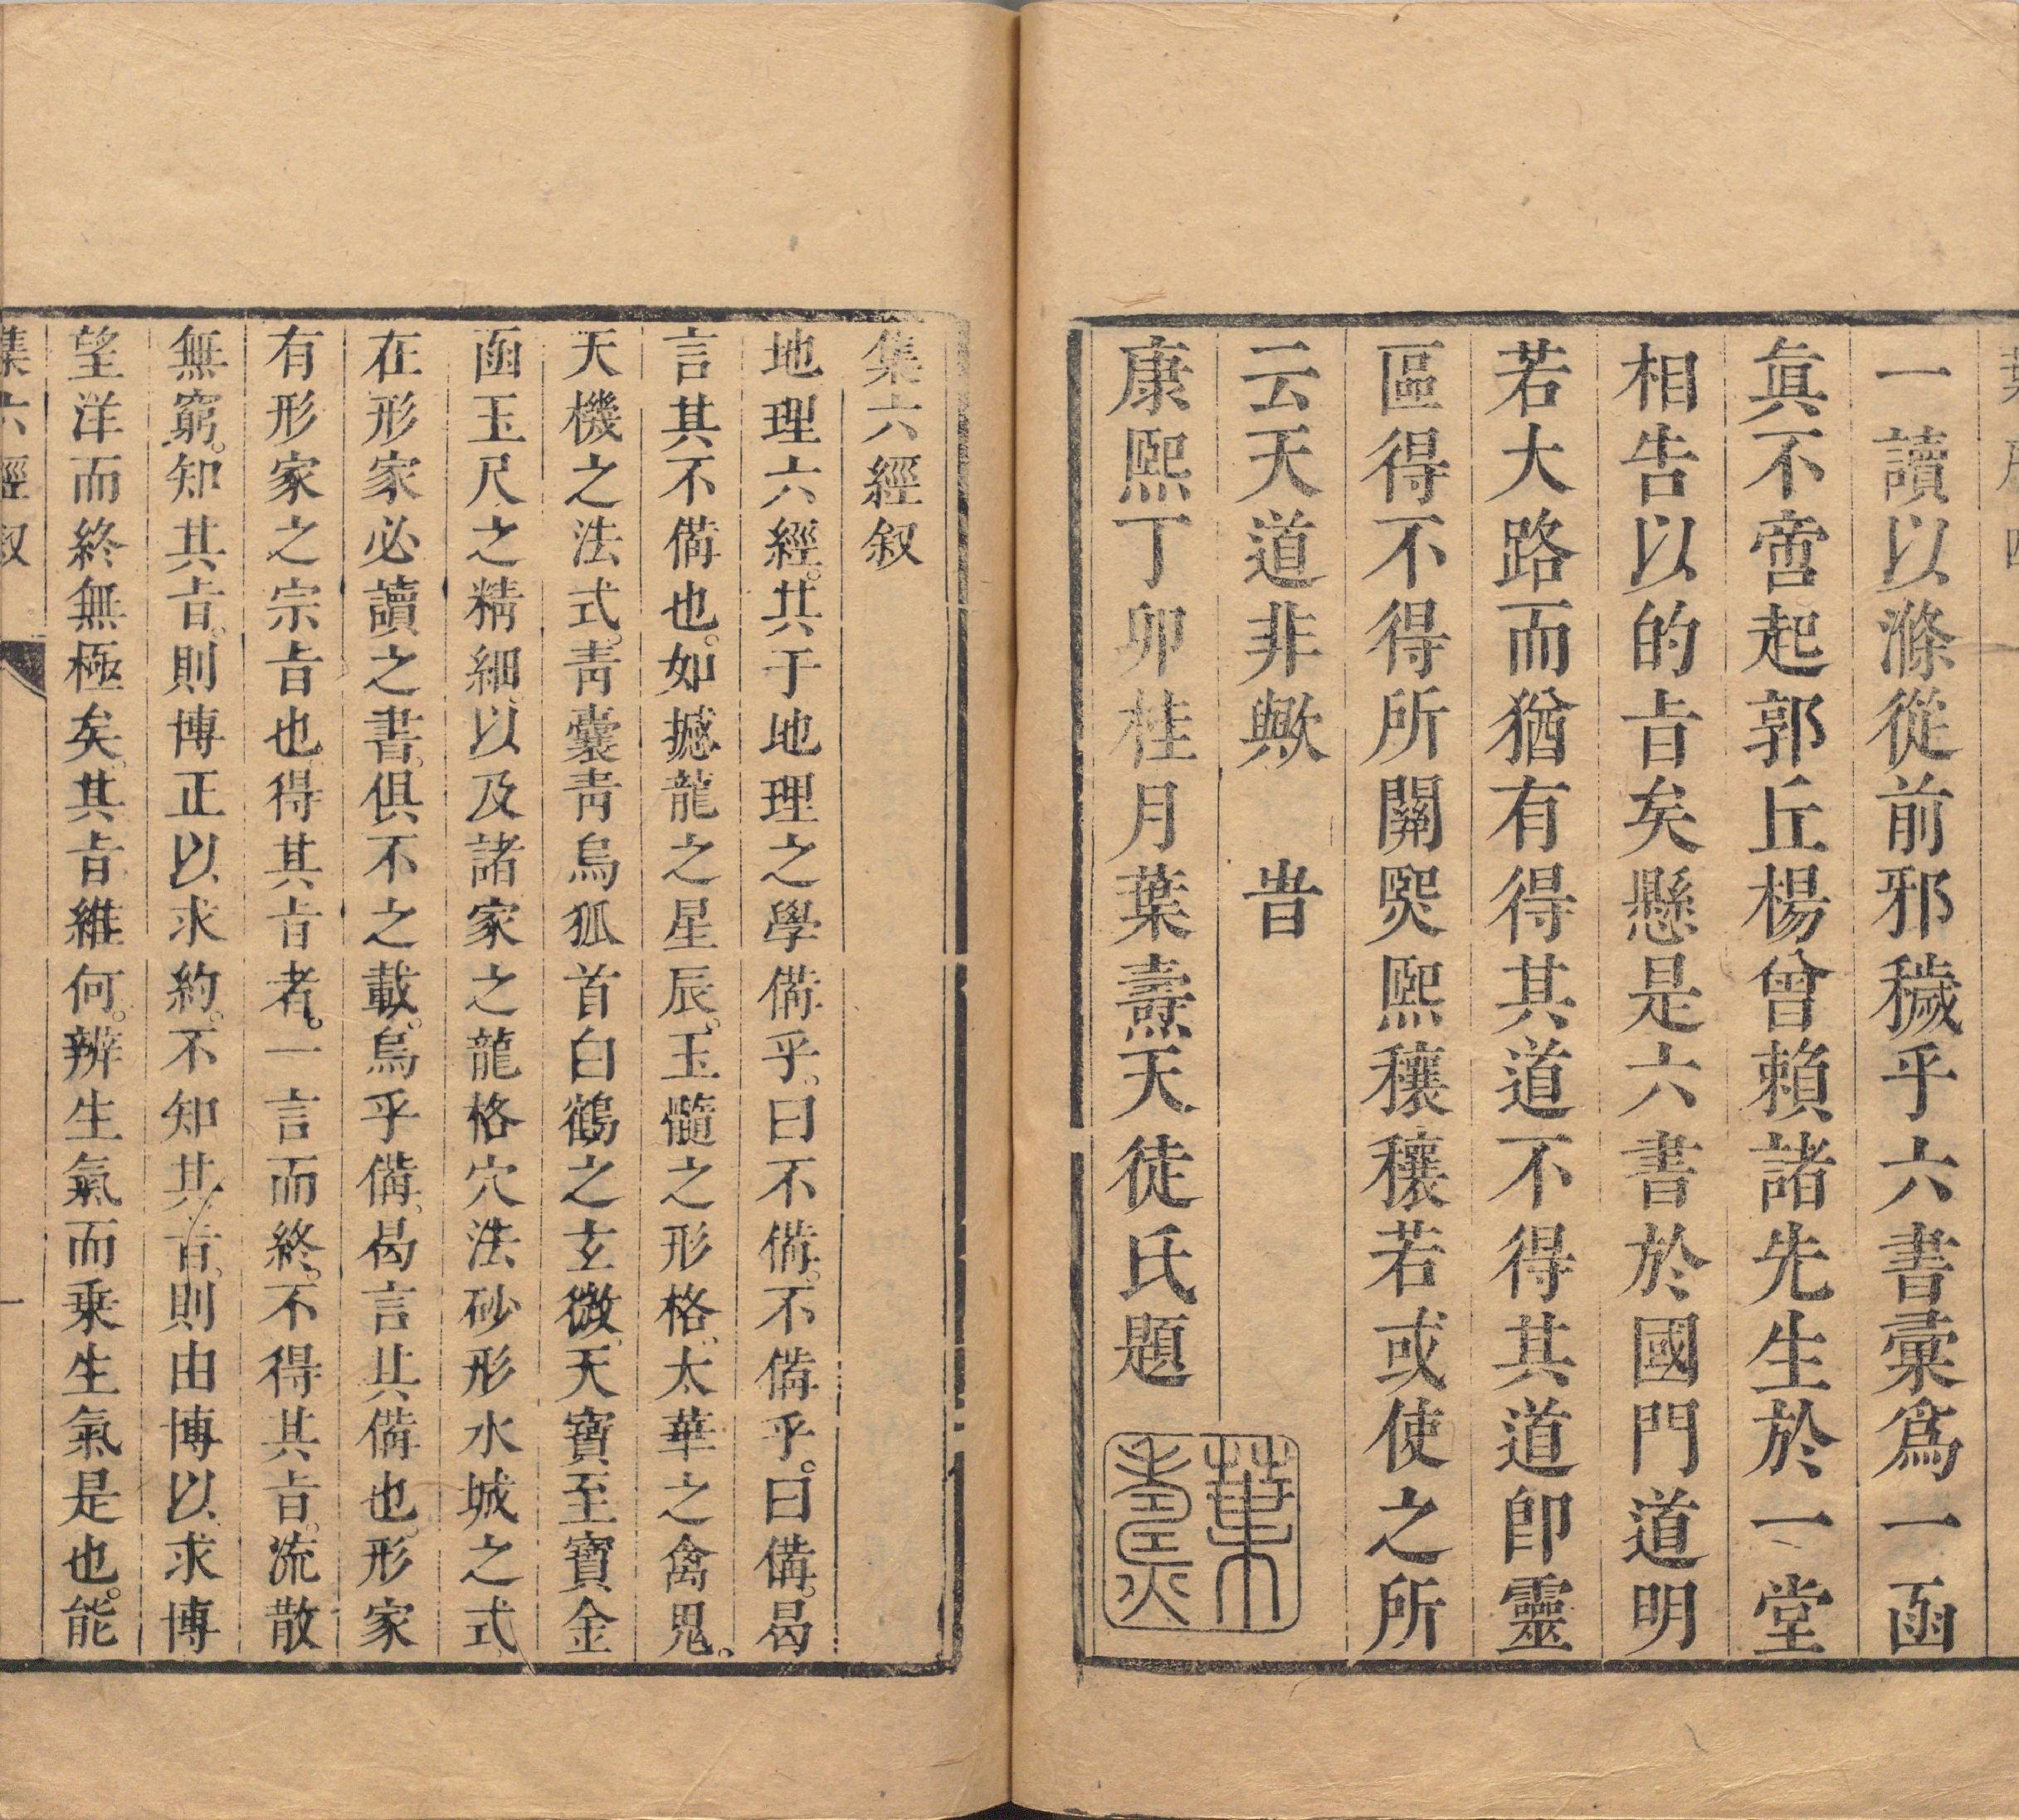 葉序 四
一讀以滌從前邪穢乎六書彙爲一函
眞不啻起郭丘楊曾賴諸先生於一堂
相告以的㫖矣懸是六書於國門道明
若大路而猶有得其道不得其道卽靈
區得不得所關熙熙穰穰若或使之所
云天道非歟　旹
康熙丁卯桂月葉燾天徒氏題
葉燾
集六經叙
地理六經。其于地理之學備乎。曰不備。不備乎。曰備。曷
言其不備也。如撼龍之星辰。玉髓之形格。太華之禽鬼。
天機之法式。青囊青烏狐首白鶴之玄微。天寶至寶金
函玉尺之精細。以及諸家之龍格穴法砂形水城之式
在形家必讀之書。俱不之載。烏乎備。曷言其備也。形家
有形家之宗㫖也。得其㫖者。一言而終。不得其㫖。流散
無窮。知其㫖。則博正以求約。不知其㫖。則由博以求博
望洋而終無極矣。其㫖維何。辨生氣而乘生氣是也。能
集六經叙 一